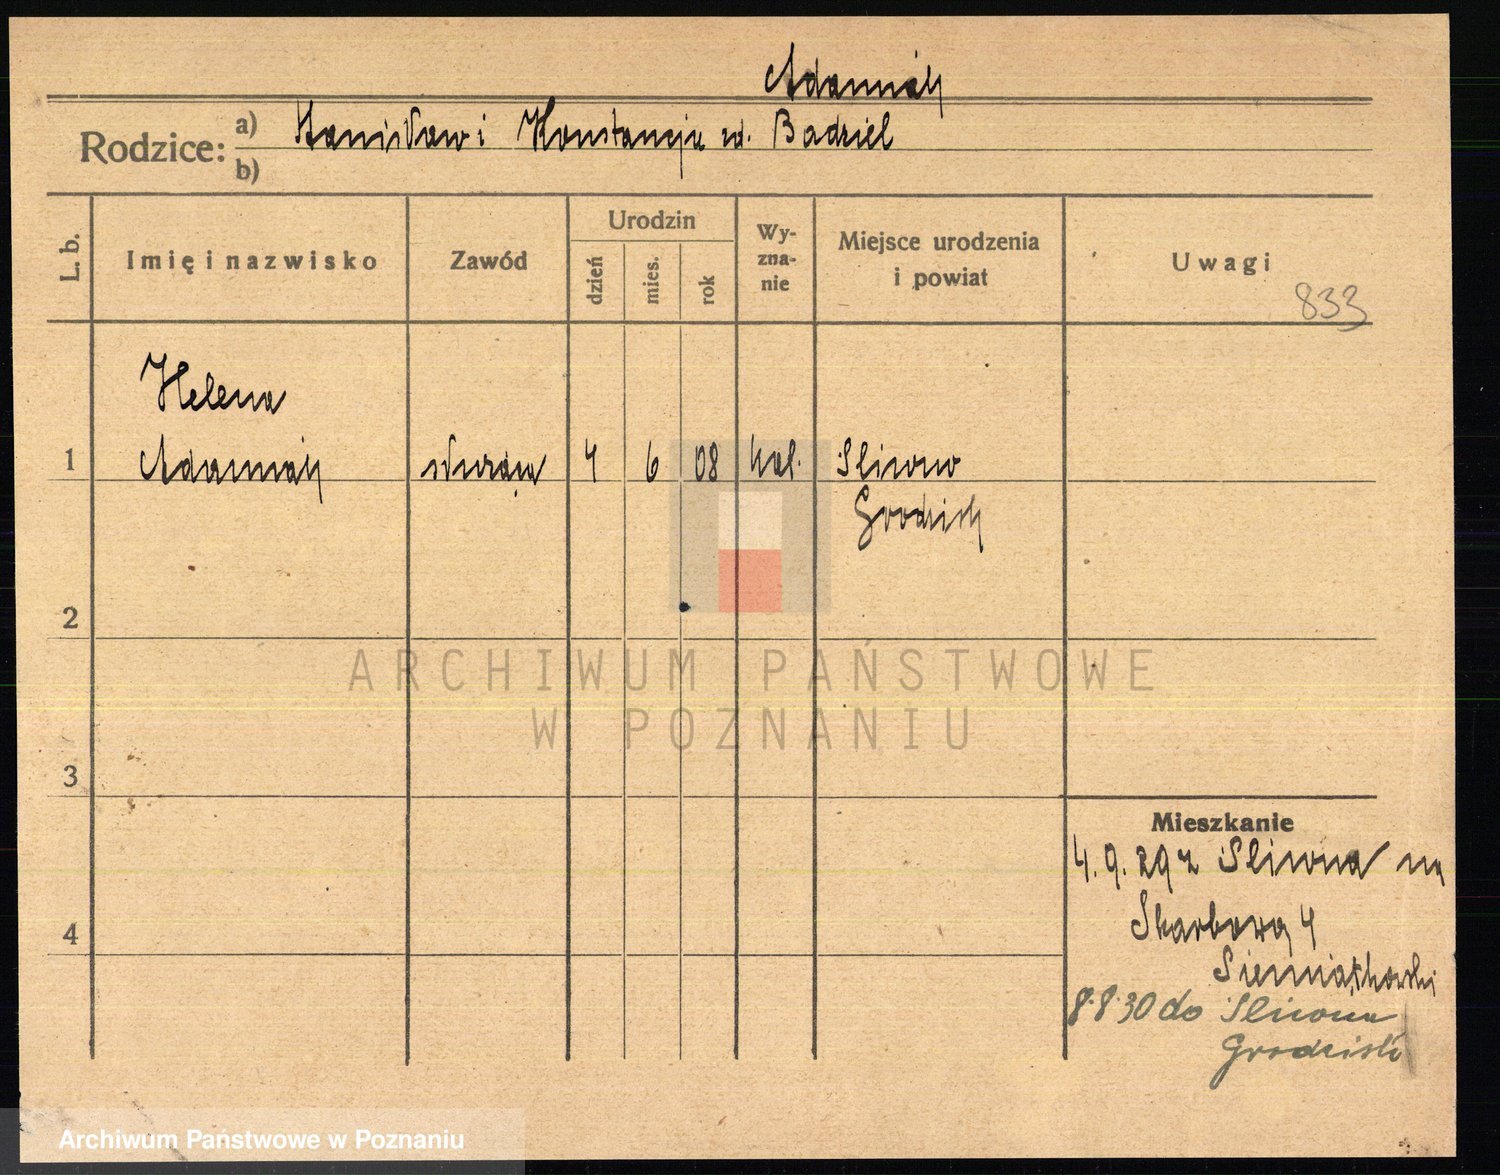 Adamiak
Rodzice: a) Stanisław i Konstancja zd. Badziel
b)
L. b.
Imię i nazwisko
Zawód
Urodzin
dzień
mies.
rok
Wy-
zna-
nie
Miejsce urodzenia
i powiat
Uwagi
833
Helena
1 Adamiak służąca 4 6 08 kat. Sliwno
Grodzisk
2
ARCHIWUM PAŃSTWOWE
W POZNANIU
3
Mieszkanie
4. 9. 29 z Sliwna na
Skarbowa 4
4
Siemiątkowski
8.8.30 do Sliwna
Grodzisk
Archiwum Państwowe w Poznaniu